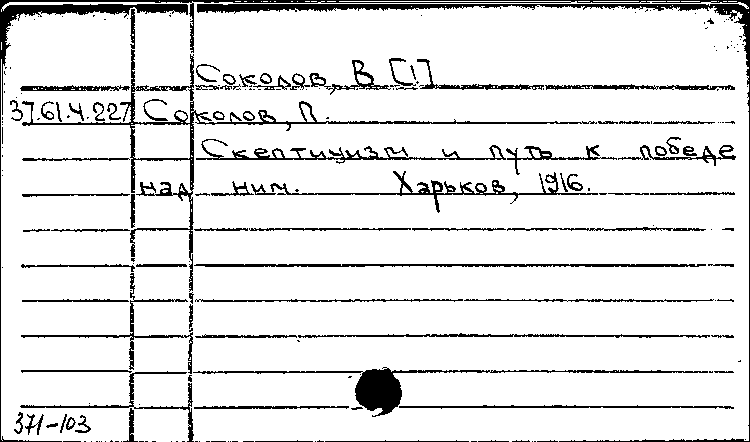 Соколов, В [1]
37.61.4.227 Соколов, П.
Скептицизм и путь к победе
над ним. Харьков, 1916.
371-103